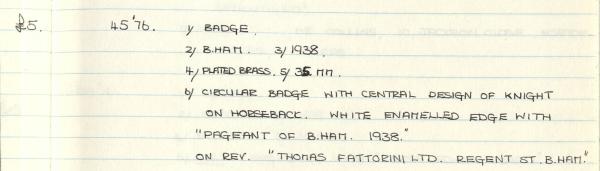 £5. 45'76. 1/ BADGE.
2/ B.HAM. 3/ 1938.
4/ PLATED BRASS. 5/ 35 MM.
6/ CIRCULAR BADGE WITH CENTRAL DESIGN OF KNIGHT
ON HORSEBACK. WHITE ENAMELLED EDGE WITH
"PAGEANT OF B.HAM. 1938."
ON REV. "THOMAS FATTORINI LTD. REGENT ST. B.HAM."